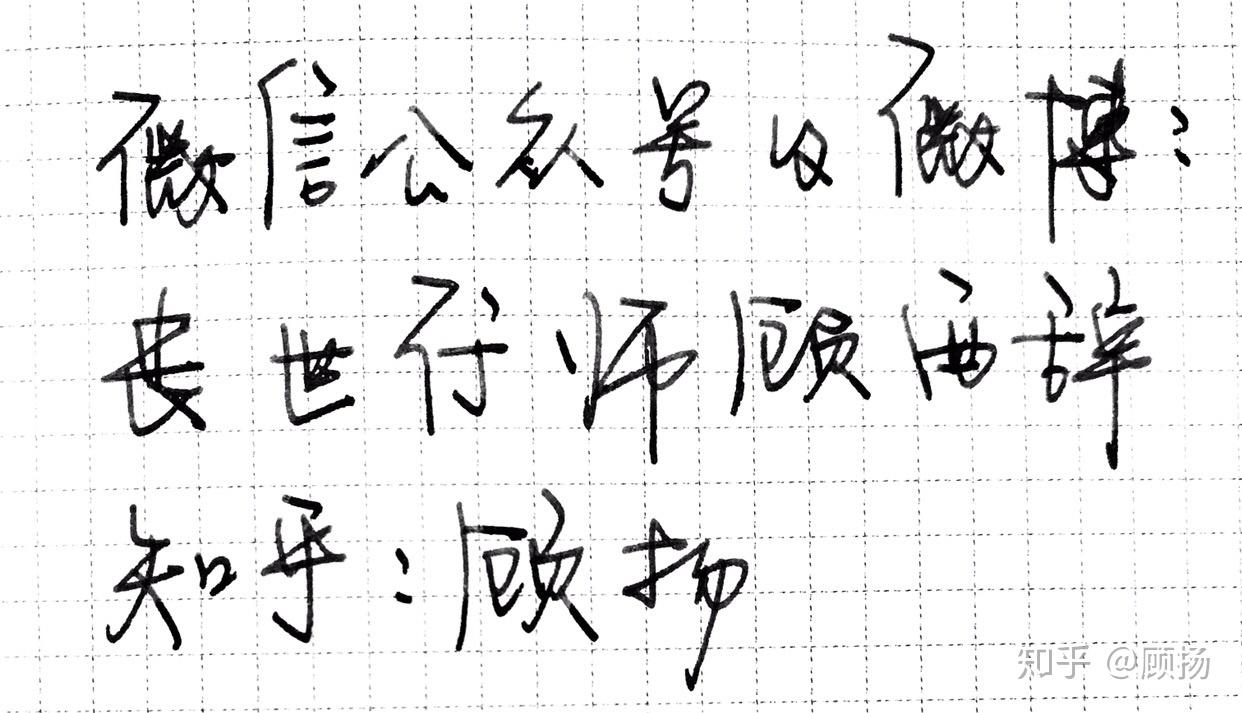 微信公众号及微博：
丧世行师顾西辞
知乎：顾扬
知乎 @顾扬